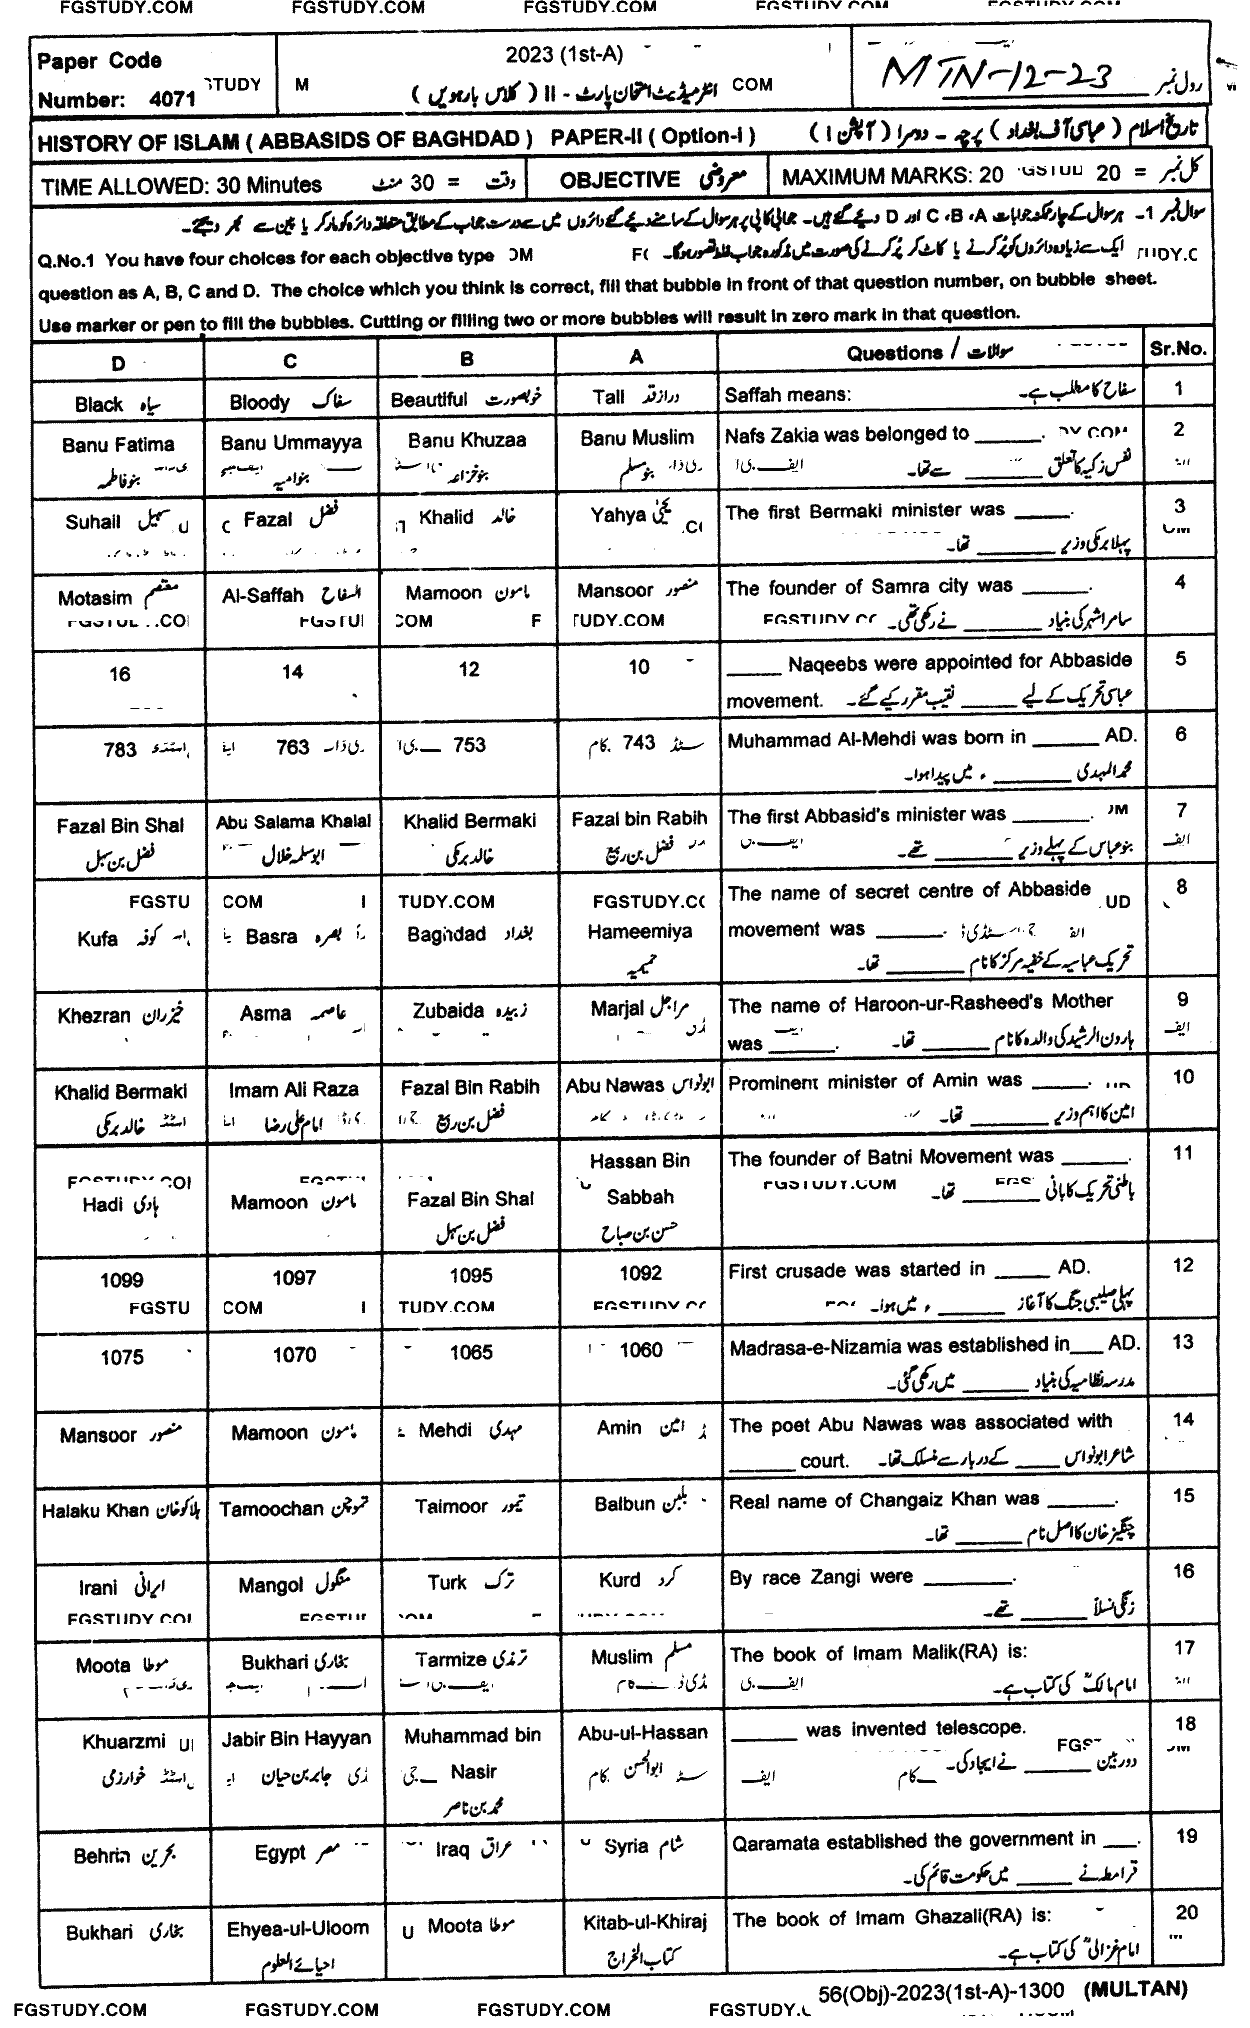 FGSTUDY.COM FGSTUDY.COM FGSTUDY.COM FGSTUDY.COM FGSTUDY.COM
Paper Code
Number: 4071
2023 (1st-A)
انٹرمیڈیٹ امتحان پارٹ - II ( کلاس بارہویں )
MTN-12-23 رول نمبر
HISTORY OF ISLAM ( ABBASIDS OF BAGHDAD ) PAPER-II ( Option-I ) تاریخ اسلام ( عباسی آف بغداد ) پرچہ - دوسرا ( آپشن I )
TIME ALLOWED: 30 Minutes وقت = 30 منٹ OBJECTIVE معروضی MAXIMUM MARKS: 20 کل نمبر = 20
سوال نمبر 1- ہر سوال کے چار ممکنہ جوابات A، B، C اور D دیئے گئے ہیں۔ جوابی کاپی پر ہر سوال کے سامنے دیئے گئے دائروں میں سے درست جواب کے مطابق متعلقہ دائرہ کو مارکر یا پین سے بھر دیجئے۔
ایک سے زیادہ دائروں کو پُر کرنے یا کاٹ کر پُر کرنے کی صورت میں مذکورہ جواب غلط تصور ہوگا۔
Q.No.1 You have four choices for each objective type
question as A, B, C and D. The choice which you think is correct, fill that bubble in front of that question number, on bubble sheet.
Use marker or pen to fill the bubbles. Cutting or filling two or more bubbles will result in zero mark in that question.
D C B A Questions / سوالات Sr.No.
Black سیاہ Bloody سفاک Beautiful خوبصورت Tall دراز قد Saffah means: سفاح کا مطلب ہے۔ 1
Banu Fatima Banu Ummayya Banu Khuzaa Banu Muslim Nafs Zakia was belonged to ______. 2
بنو فاطمہ بنو امیہ بنو خزاعہ بنو مسلم نفس زکیہ کا تعلق ______ سے تھا۔
Suhail سہیل Fazal فضل Khalid خالد Yahya یحییٰ The first Bermaki minister was _____. 3
پہلا برمکی وزیر ______ تھا۔
Motasim معتصم Al-Saffah السفاح Mamoon مامون Mansoor منصور The founder of Samra city was ______. 4
سامرا شہر کی بنیاد ______ نے رکھی تھی۔
16 14 12 10 _____ Naqeebs were appointed for Abbaside 5
movement. عباسی تحریک کے لیے _____ نقیب مقرر کیے گئے۔
783 763 753 743 Muhammad Al-Mehdi was born in ______ AD. 6
محمد المہدی ______ ء میں پیدا ہوا۔
Fazal Bin Shal Abu Salama Khalal Khalid Bermaki Fazal bin Rabih The first Abbasid's minister was ______. 7
فضل بن سہل ابو سلمہ خلال خالد برمکی فضل بن ربیع بنو عباس کے پہلے وزیر ______ تھے۔
The name of secret centre of Abbaside 8
Kufa کوفہ Basra بصرہ Baghdad بغداد Hameemiya movement was ______.
حمیمیہ تحریک عباسیہ کے خفیہ مرکز کا نام ______ تھا۔
Khezran خیزران Asma عاصمہ Zubaida زبیدہ Marjal مراجل The name of Haroon-ur-Rasheed's Mother 9
was ______. ہارون الرشید کی والدہ کا نام ______ تھا۔
Khalid Bermaki Imam Ali Raza Fazal Bin Rabih Abu Nawas ابو نواس Prominent minister of Amin was _____. 10
خالد برمکی امام علی رضا فضل بن ربیع امین کا اہم وزیر ______ تھا۔
Hassan Bin The founder of Batni Movement was ______. 11
Hadi ہادی Mamoon مامون Fazal Bin Shal Sabbah باطنی تحریک کا بانی ______ تھا۔
فضل بن سہل حسن بن صباح
1099 1097 1095 1092 First crusade was started in _____ AD. 12
پہلی صلیبی جنگ کا آغاز ______ ء میں ہوا۔
1075 1070 1065 1060 Madrasa-e-Nizamia was established in___ AD. 13
مدرسہ نظامیہ کی بنیاد ______ میں رکھی گئی۔
Mansoor منصور Mamoon مامون Mehdi مہدی Amin امین The poet Abu Nawas was associated with 14
______ court. شاعر ابو نواس ____ کے دربار سے منسلک تھا۔
Halaku Khan ہلاکو خان Tamoochan تموچن Taimoor تیمور Balbun بلبن Real name of Changaiz Khan was ______. 15
چنگیز خان کا اصل نام ______ تھا۔
Irani ایرانی Mangol منگول Turk ترک Kurd کرد By race Zangi were ________. 16
زنگی نسلاً ______ تھے۔
Moota موطا Bukhari بخاری Tarmize ترمذی Muslim مسلم The book of Imam Malik(RA) is: 17
امام مالکؒ کی کتاب ہے۔
Khuarzmi Jabir Bin Hayyan Muhammad bin Abu-ul-Hassan ______ was invented telescope. 18
خوارزمی جابر بن حیان Nasir ابوالحسن دوربین ______ نے ایجاد کی۔
محمد بن ناصر
Behrin بحرین Egypt مصر Iraq عراق Syria شام Qaramata established the government in ___. 19
قرامطہ نے _____ میں حکومت قائم کی۔
Bukhari بخاری Ehyea-ul-Uloom Moota موطا Kitab-ul-Khiraj The book of Imam Ghazali(RA) is: 20
احیائے العلوم کتاب الخراج امام غزالیؒ کی کتاب ہے۔
56(Obj)-2023(1st-A)-1300 (MULTAN)
FGSTUDY.COM FGSTUDY.COM FGSTUDY.COM